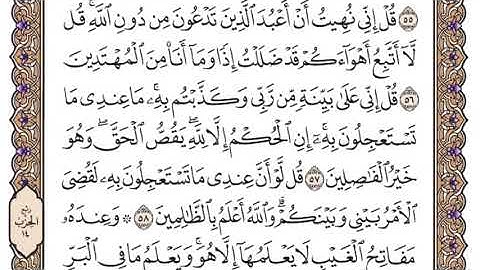 ٥٥ قُلْ إِنِّى نُهِيتُ أَنْ أَعْبُدَ ٱلَّذِينَ تَدْعُونَ مِن دُونِ ٱللَّهِ ۚ قُل
لَّآ أَتَّبِعُ أَهْوَآءَكُمْ ۙ قَدْ ضَلَلْتُ إِذًا وَمَآ أَنَا۠ مِنَ ٱلْمُهْتَدِينَ
٥٦ قُلْ إِنِّى عَلَىٰ بَيِّنَةٍ مِّن رَّبِّى وَكَذَّبْتُم بِهِۦ ۚ مَا عِندِى مَا
تَسْتَعْجِلُونَ بِهِۦٓ ۚ إِنِ ٱلْحُكْمُ إِلَّا لِلَّهِ ۖ يَقُصُّ ٱلْحَقَّ ۖ وَهُوَ
خَيْرُ ٱلْفَـٰصِلِينَ ٥٧ قُل لَّوْ أَنَّ عِندِى مَا تَسْتَعْجِلُونَ بِهِۦ لَقُضِىَ
ٱلْأَمْرُ بَيْنِى وَبَيْنَكُمْ ۗ وَٱللَّهُ أَعْلَمُ بِٱلظَّـٰلِمِينَ ٥٨ ۞ وَعِندَهُۥ
مَفَاتِحُ ٱلْغَيْبِ لَا يَعْلَمُهَآ إِلَّا هُوَ ۚ وَيَعْلَمُ مَا فِى ٱلْبَرِّ
ربع
الحزب
١٤